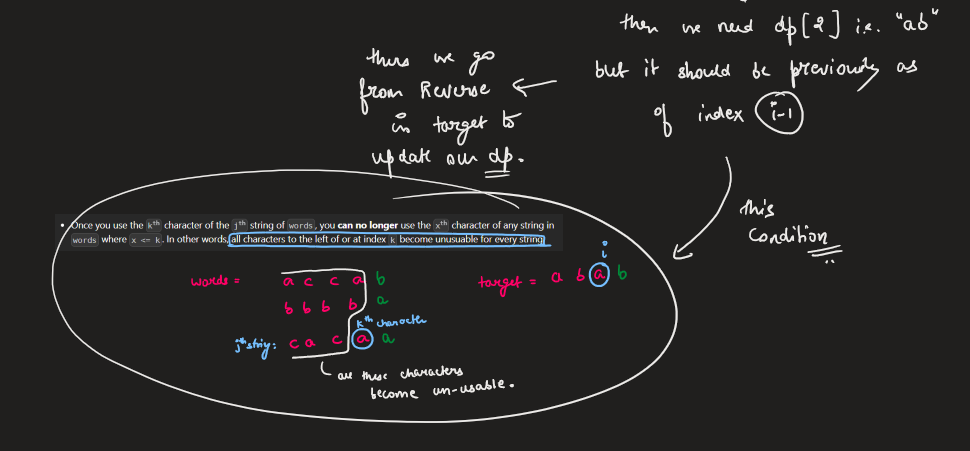 then we need dp[2] i.e. "ab"
but it should be previously as
of index i-1
thus we go
from Reverse
in target to
update our dp.
this
condition
• Once you use the kth character of the jth string of words, you can no longer use the xth character of any string in
words where x <= k. In other words, all characters to the left of or at index k become unusuable for every string.
words = a c c a b
b b b b a
jth string: c a c a a
kth character
i
target = a b a b
all these characters
become un-usable.